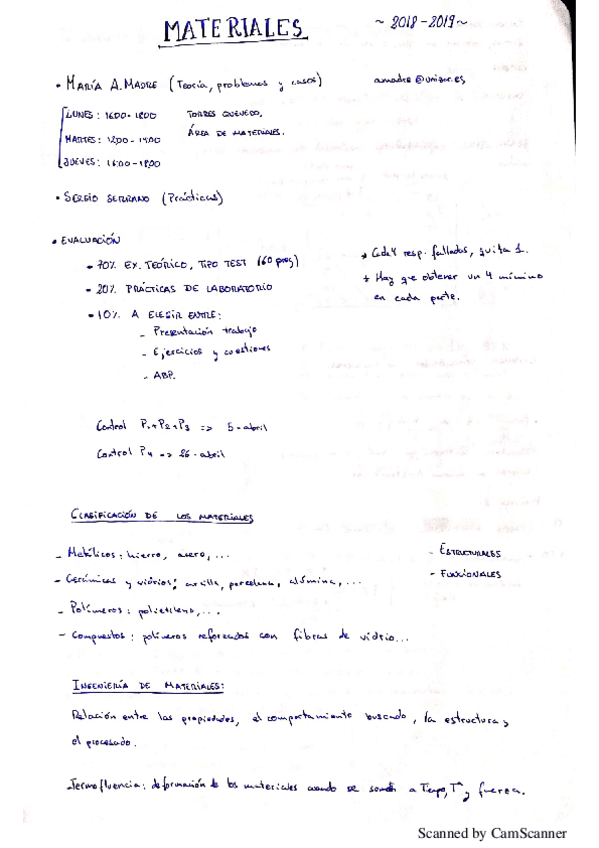 MATERIALES
~ 2018-2019 ~
• MARÍA A. MADRE (Teoría, problemas y casos)
amadre@unizar.es
LUNES: 16:00 - 18:00
TORRES QUEVEDO,
MARTES: 12:00 - 14:00
ÁREA DE MATERIALES.
JUEVES: 16:00 - 18:00
• SERGIO SERRANO (Prácticas)
• EVALUACIÓN
- 70% EX. TEÓRICO, TIPO TEST (60 preg)
- 20% PRÁCTICAS DE LABORATORIO
- 10% A ELEGIR ENTRE:
- Presentación trabajo
- Ejercicios y cuestiones
- ABP.
* Cada 4 resp. falladas, quita 1.
* Hay que obtener un 4 mínimo
en cada parte.
Control P1+P2+P3 => 5-abril
Control P4 => 26-abril
CLASIFICACIÓN DE LOS MATERIALES
- Metálicos: hierro, acero, ...
- Cerámicas y vidrios: arcilla, porcelana, alúmina, ...
- Polímeros: polietileno, ...
- Compuestos: polímeros reforzados con fibras de vidrio...
- ESTRUCTURALES
- FUNCIONALES
INGENIERÍA DE MATERIALES:
Relación entre las propiedades, el comportamiento buscado, la estructura y
el procesado.
- Termofluencia: deformación de los materiales cuando se someten a Tiempo, Tª y fuerza.
Scanned by CamScanner